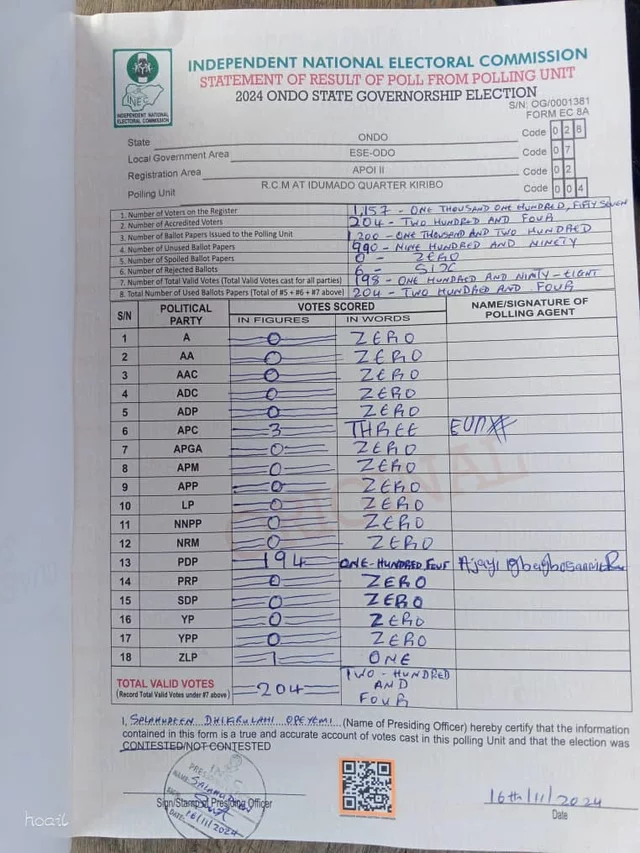 INDEPENDENT NATIONAL ELECTORAL COMMISSION
STATEMENT OF RESULT OF POLL FROM POLLING UNIT
2024 ONDO STATE GOVERNORSHIP ELECTION
INEC
INDEPENDENT NATIONAL
ELECTORAL COMMISSION
S/N: OG/0001381
FORM EC 8A
State ONDO Code 0 2 8
Local Government Area ESE-ODO Code 0 7
Registration Area APOI II Code 0 2
Polling Unit R.C.M AT IDUMADO QUARTER KIRIBO Code 0 0 4
1. Number of Voters on the Register 1,157 - ONE THOUSAND ONE HUNDRED, FIFTY SEVEN
2. Number of Accredited Voters 204 - TWO HUNDRED AND FOUR
3. Number of Ballot Papers Issued to the Polling Unit 1,200 - ONE THOUSAND AND TWO HUNDRED
4. Number of Unused Ballot Papers 990 - NINE HUNDRED AND NINETY
5. Number of Spoiled Ballot Papers 0 - ZERO
6. Number of Rejected Ballots 6 - SIX
7. Number of Total Valid Votes (Total Valid Votes cast for all parties) 198 - ONE HUNDRED AND NINTY-EIGHT
8. Total Number of Used Ballots Papers (Total of #5 + #6 + #7 above) 204 - TWO HUNDRED AND FOUR
S/N POLITICAL PARTY VOTES SCORED NAME/SIGNATURE OF POLLING AGENT
IN FIGURES IN WORDS
1 A 0 ZERO
2 AA 0 ZERO
3 AAC 0 ZERO
4 ADC 0 ZERO
5 ADP 0 ZERO
6 APC 3 THREE
7 APGA 0 ZERO
8 APM 0 ZERO
9 APP 0 ZERO
10 LP 0 ZERO
11 NNPP 0 ZERO
12 NRM 0 ZERO
13 PDP 194 ONE-HUNDRED, FOUR Ajayi
14 PRP 0 ZERO
15 SDP 0 ZERO
16 YP 0 ZERO
17 YPP 0 ZERO
18 ZLP 1 ONE
ORIGINAL
TOTAL VALID VOTES 204 TWO-HUNDRED AND FOUR
(Record Total Valid Votes under #7 above)
I, SALAHUDEEN DHIKRULAHI OPEYEMI (Name of Presiding Officer) hereby certify that the information
contained in this form is a true and accurate account of votes cast in this polling Unit and that the election was
CONTESTED/NOT CONTESTED
Sign/Stamp of Presiding Officer
NAME: SALAHUDEEN
DATE: 16/11/2024
16th/11/2024
Date